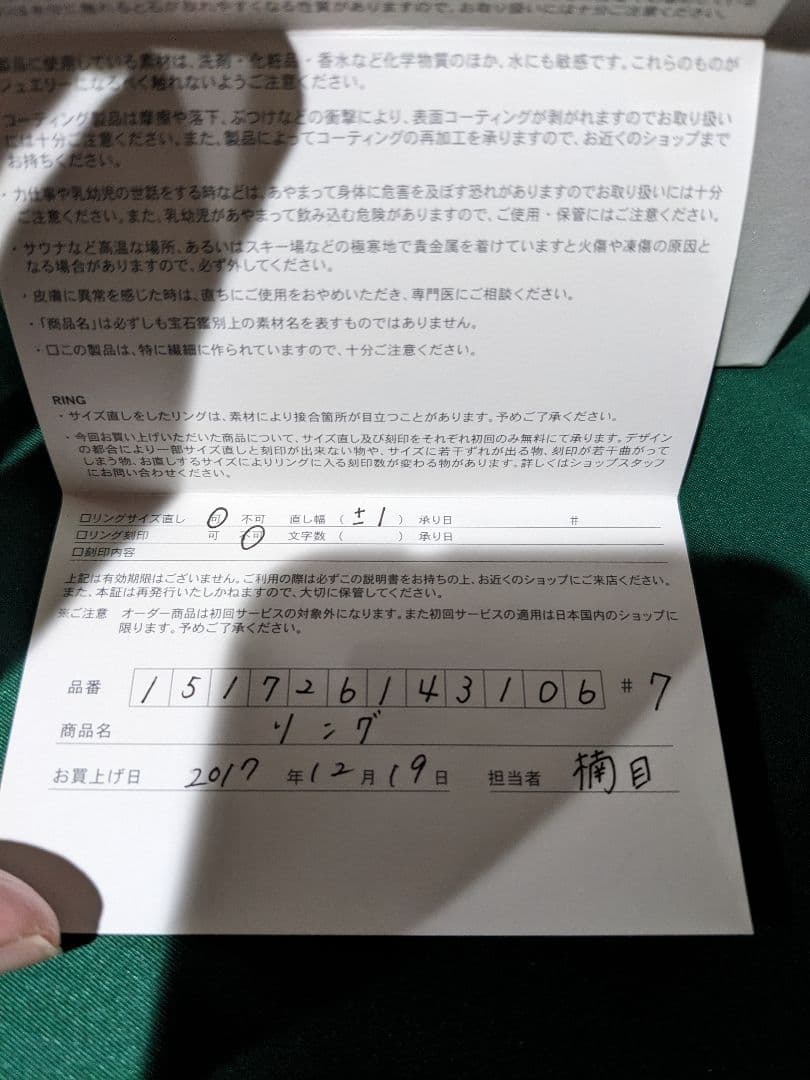 製品に使用している素材は、洗剤・化粧品・香水など化学物質のほか、水にも敏感です。これらのものが
ジュエリーになるべく触れないようご注意ください。
コーティング製品は摩擦や落下、ぶつけなどの衝撃により、表面コーティングが剥がれますのでお取り扱い
には十分ご注意ください。また、製品によってコーティングの再加工を承りますので、お近くのショップまで
お持ちください。
・力仕事や乳幼児の世話をする時などは、あやまって身体に危害を及ぼす恐れがありますのでお取り扱いには十分
ご注意ください。また、乳幼児があやまって飲み込む危険がありますので、ご使用・保管にはご注意ください。
・サウナなど高温な場所、あるいはスキー場などの極寒地で貴金属を着けていますと火傷や凍傷の原因と
なる場合がありますので、必ず外してください。
・皮膚に異常を感じた時は、直ちにご使用をおやめいただき、専門医にご相談ください。
・「商品名」は必ずしも宝石鑑別上の素材名を表すものではありません。
・□この製品は、特に繊細に作られていますので、十分ご注意ください。
RING
・サイズ直しをしたリングは、素材により接合箇所が目立つことがあります。予めご了承ください。
・今回お買い上げいただいた商品について、サイズ直し及び刻印をそれぞれ初回のみ無料にて承ります。デザイン
の都合により一部サイズ直しと刻印が出来ない物や、サイズに若干ずれが出る物、刻印が若干曲がって
しまう物、お直しするサイズによりリングに入る刻印数が変わる物があります。詳しくはショップスタッフ
にお問い合わせください。
□リングサイズ直し 可 不可 直し幅 ( ±1 ) 承り日 #
□リング刻印 可 不可 文字数 ( ) 承り日
□刻印内容
上記は有効期限はございません。ご利用の際は必ずこの説明書をお持ちの上、お近くのショップにご来店ください。
また、本証は再発行いたしかねますので、大切に保管してください。
※ご注意 オーダー商品は初回サービスの対象外になります。また初回サービスの適用は日本国内のショップに
限ります。予めご了承ください。
品番 151726143106 # 7
商品名 リング
お買上げ日 2017 年 12 月 19 日 担当者 楠目